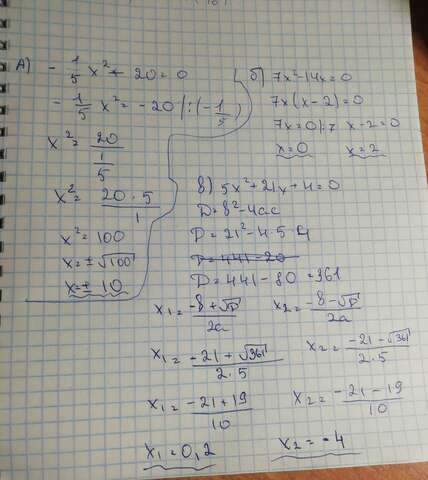 А) - 1/5 x² + 20 = 0
- 1/5 x² = -20 | : (- 1/5)
x² = 20 / 1/5
x² = 20 · 5 / 1
x² = 100
x = ± √100
x = ± 10
б) 7x² - 14x = 0
7x(x - 2) = 0
7x = 0 | : 7 x - 2 = 0
x = 0 x = 2
в) 5x² + 21x + 4 = 0
D = в² - 4ac
D = 21² - 4 · 5 · 4
D = 441 - 20
D = 441 - 80 = 361
x₁ = -в + √D / 2a x₂ = -в - √D / 2a
x₁ = -21 + √361 / 2 · 5 x₂ = -21 - √361 / 2 · 5
x₁ = -21 + 19 / 10 x₂ = -21 - 19 / 10
x₁ = 0,2 x₂ = -4